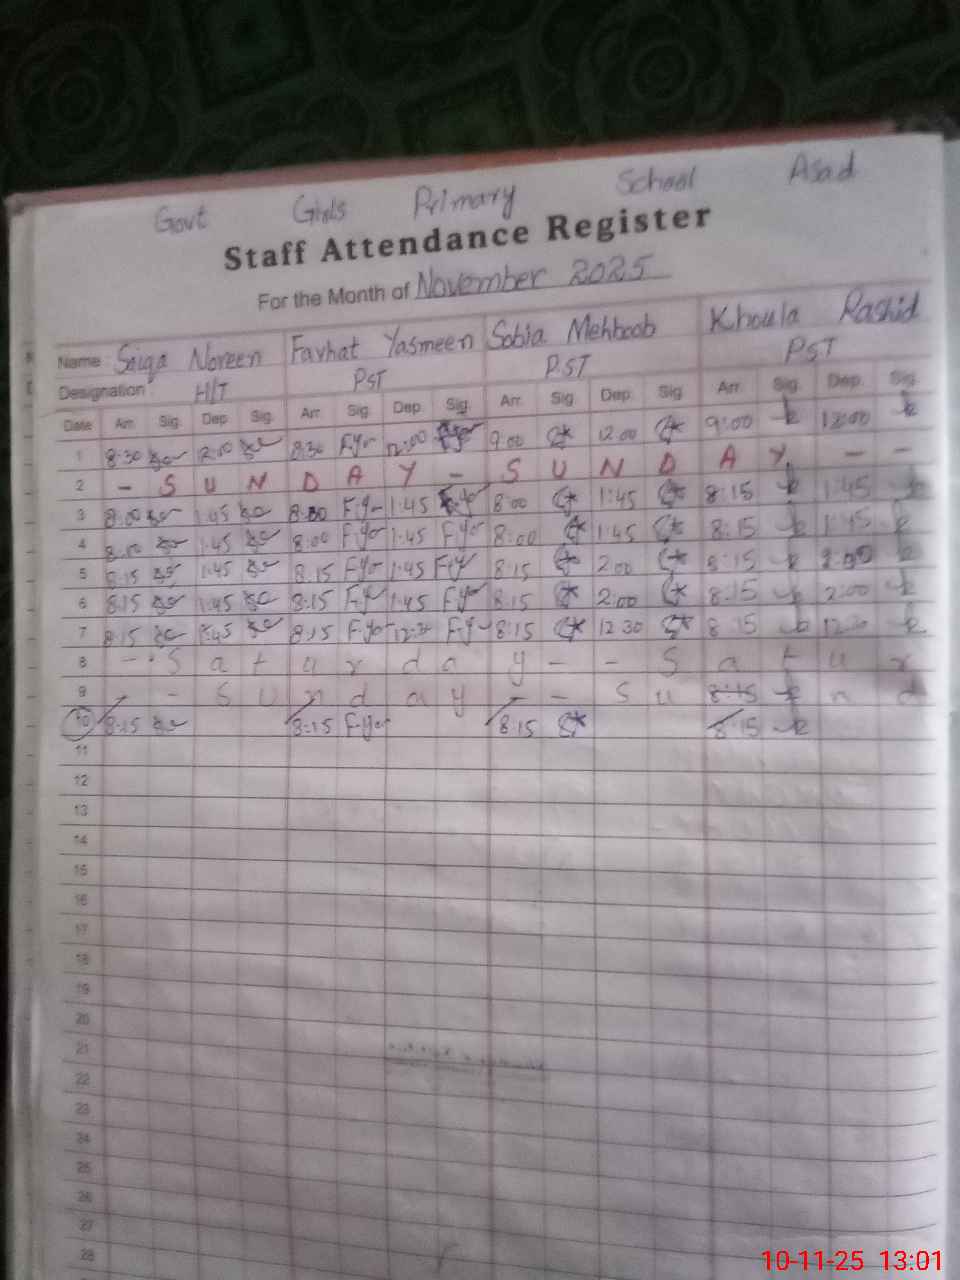 Govt Girls Primary School Asad
Staff Attendance Register
For the Month of November 2025
Name Saiqa Noreen Farhat Yasmeen Sobia Mehboob Khoula Rashid
Designation H/T PST P.ST PST
Date Arr. Sig. Dep. Sig. Arr. Sig. Dep. Sig. Arr. Sig. Dep. Sig. Arr. Sig. Dep. Sig.
1 8:30 12:00 8:30 F.Yar 12:00 9:00 12:00 9:00 12:00
2 - S U N D A Y - S U N D A Y - -
3 8:00 1:45 8:00 F.Yar 1:45 F.Yar 8:00 1:45 8:15 1:45
4 8:10 1:45 8:00 F.Yar 1:45 F.Yar 8:00 1:45 8:15 1:45
5 8:15 1:45 8:15 F.Yar 1:45 F.Yar 8:15 2:00 8:15 2:00
6 8:15 1:45 8:15 F.Yar 1:45 F.Yar 8:15 2:00 8:15 2:00
7 8:15 8:15 F.Yar 12:30 F.Yar 8:15 12:30 8:15 12:30
8 - - S a t u r d a y - - S a t u r
9 - - S u n d a y - - S u 8:15 n d
10 8:15 8:15 F.Yar 8:15 8:15
11
12
13
14
15
16
17
18
19
20
21
22
23
24
25
26
27
28
10-11-25 13:01